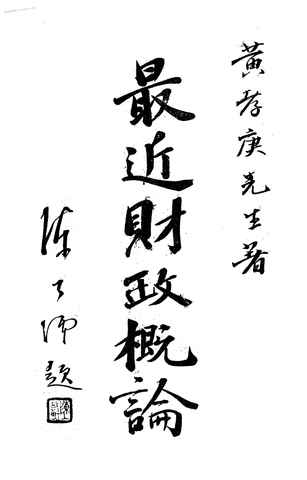 黃孝庚先生著
最近財政概論
陳 題